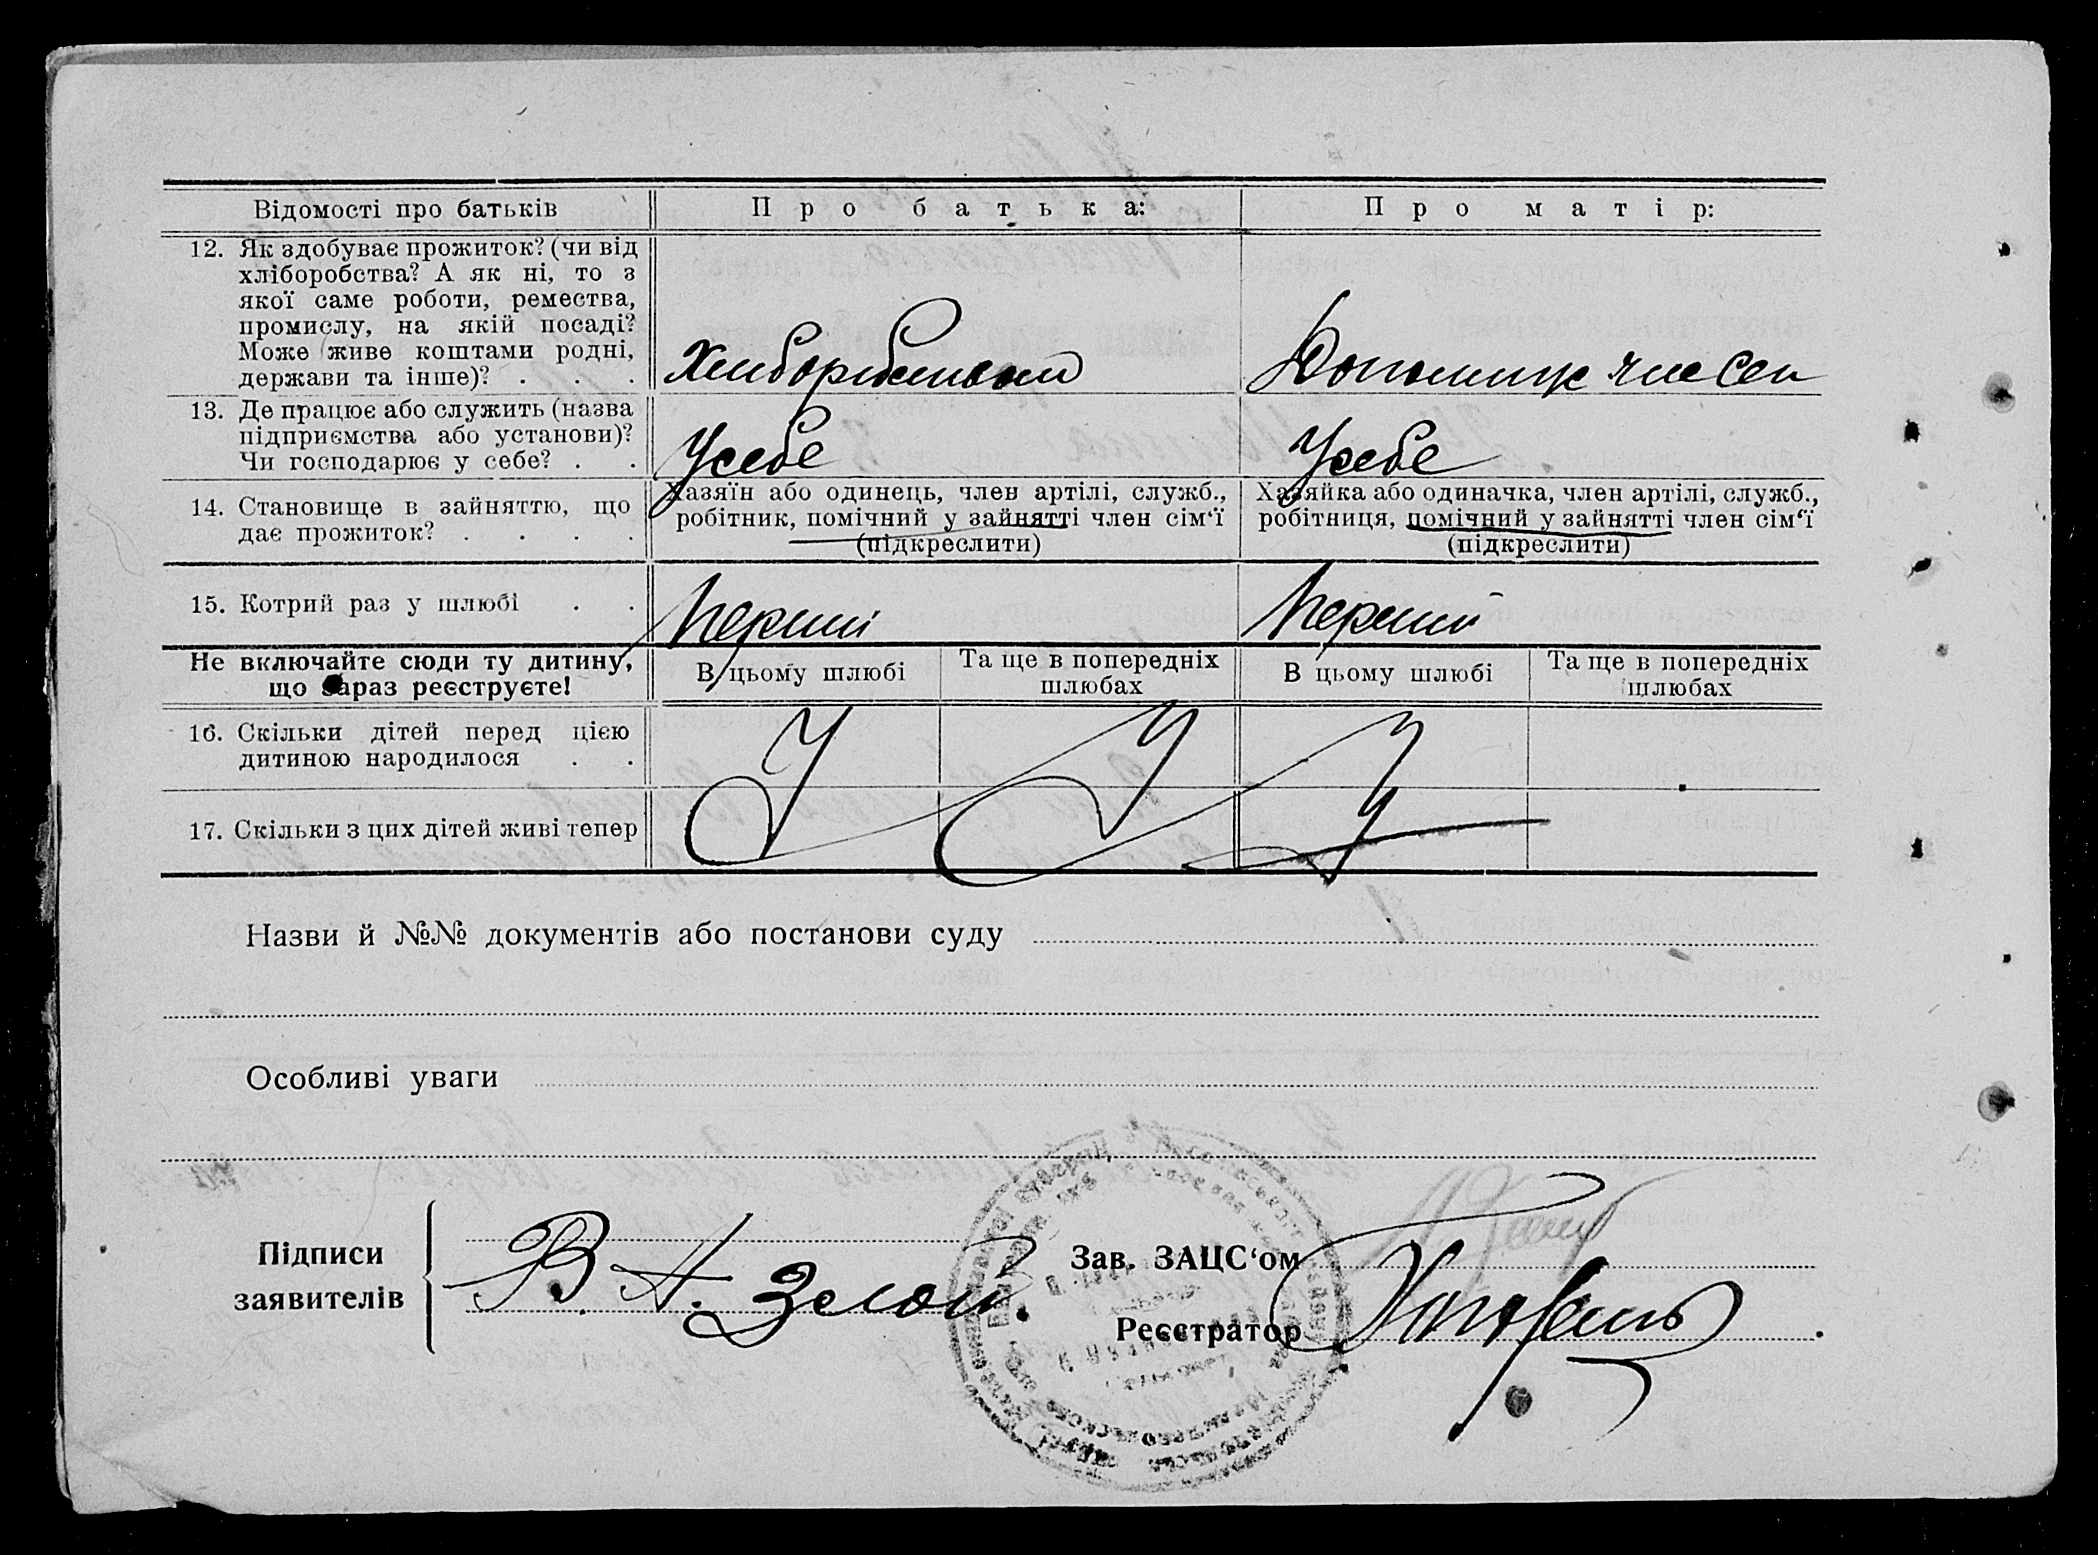 Відомості про батьків
Про батька:
Про матір:
12. Як здобуває прожиток? (чи від
хліборобства? А як ні, то з
якої саме роботи, ремества,
промислу, на якій посаді?
Може живе коштами родні,
держави та інше)? . . .
Допомиж член сем
13. Де працює або служить (назва
підприємства або установи)?
Чи господарює у себе? . .
Усебе
Усебе
14. Становище в зайняттю, що
дає прожиток? . . . .
Хазяїн або одинець, член артілі, служб.,
робітник, помічний у зайнятті член сім‘ї
(підкреслити)
Хазяйка або одиначка, член артілі, служб.,
робітниця, помічний у зайнятті член сім‘ї
(підкреслити)
15. Котрий раз у шлюбі . .
Перший
Перший
Не включайте сюди ту дитину,
що зараз реєструєте!
В цьому шлюбі
Та ще в попередніх
шлюбах
В цьому шлюбі
Та ще в попередніх
шлюбах
16. Скільки дітей перед цією
дитиною народилося . .
17. Скільки з цих дітей живі тепер
Назви й №№ документів або постанови суду
Особливі уваги
Підписи
заявителів
В. А. Зелой.
Зав. ЗАЦС‘ом
Реєстратор